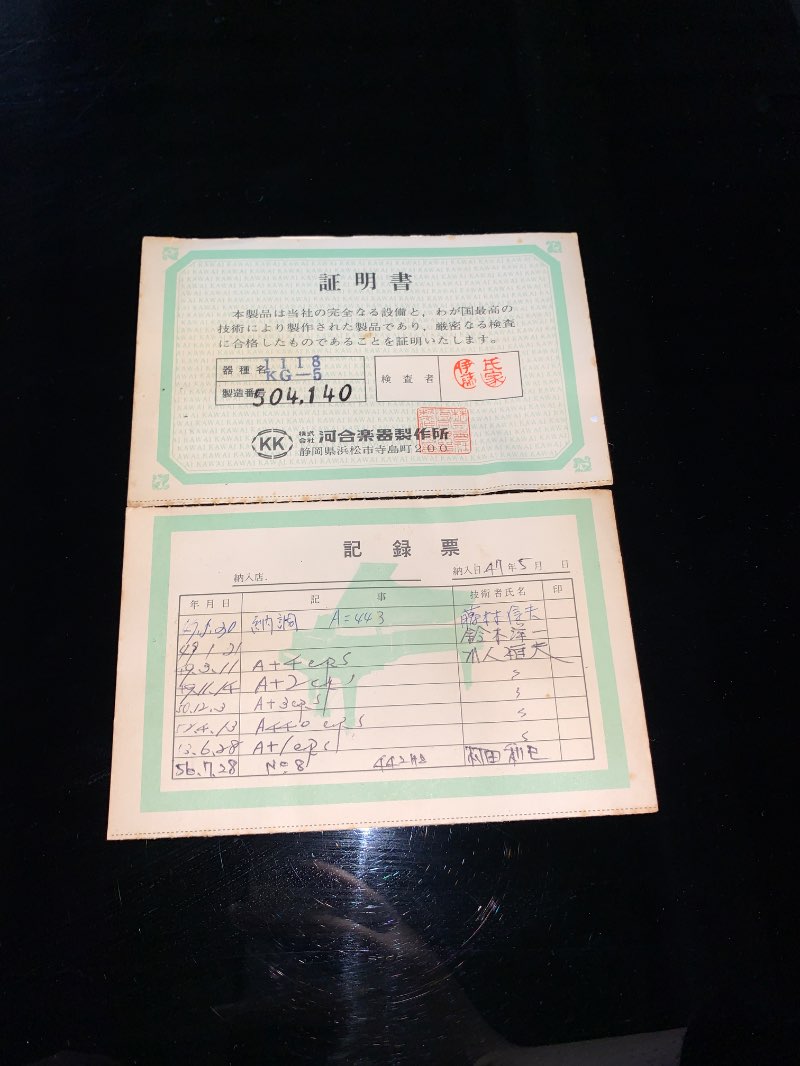 証明書
本製品は当社の完全なる設備と、わが国最高の
技術により製作された製品であり、厳密なる検査
に合格したものであることを証明いたします。
器種名 1118 KG-5
製造番号 504.140
検査者 伊藤 氏家
KK 株式会社 河合楽器製作所
静岡県浜松市寺島町200
記録票
納入店. 納入日.47年5月 日
年月日 記事 技術者氏名 印
納調 A=443
49.1.21 鈴木洋一
A+4cps
49.11.14 A+2
50.12.3 A+3cps
A440 cps
53.6.28 A+1cps
56.7.28 No.8 442Hz